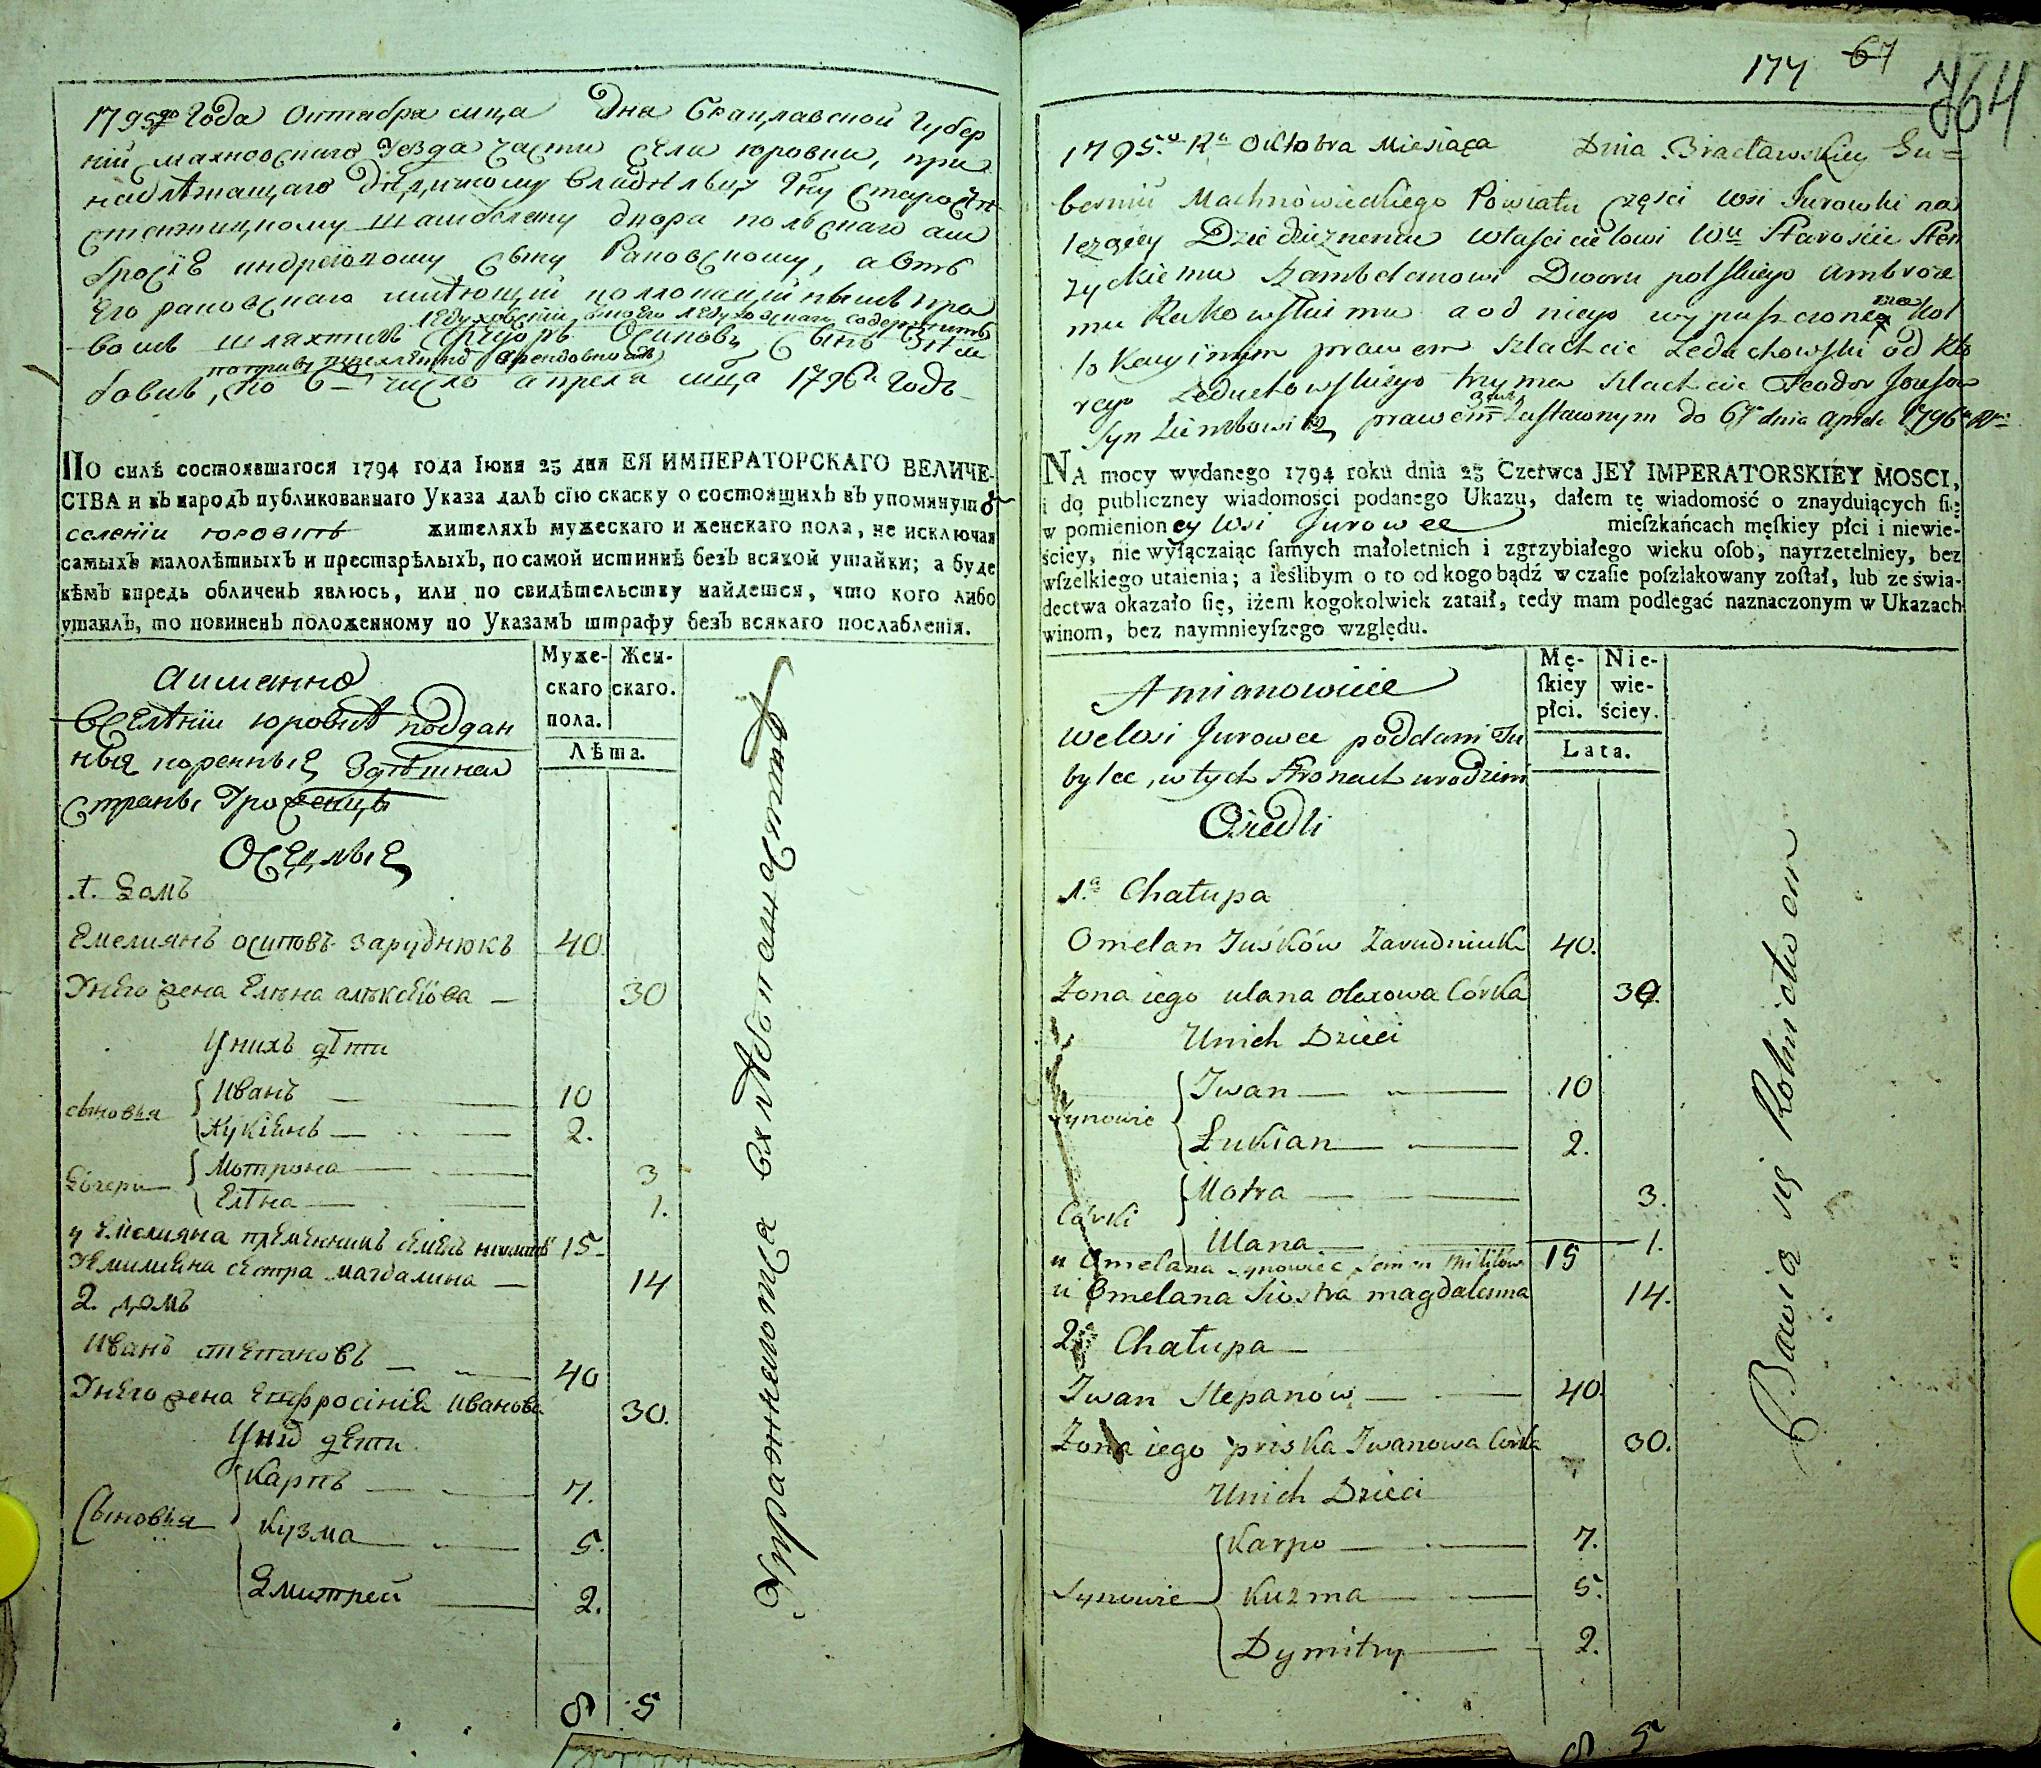 1795го Года Октабра мца Дна Брацлавской Губер
ній махновскаго Уезда части села юровки, при
надлѣжащаго дѣдичному владѣльцу Яну старостѣ
стенжицкому шамбеляну двора польскаго ам
бросіѣ андреіовому сыну Раковскому, а отъ
Его раковскаго
ледуховскій, онаго ледуховскаго содержитъ
воме шляхтичъ Осиповъ сынъ
по праву арендовному
бовичъ, по 6е число апреля мца 1796го годъ
ПО силѣ состоявшагося 1794 года Іюня 23 дня ЕЯ ИМПЕРАТОРСКАГО ВЕЛИЧЕ-
СТВА и въ народъ публикованнаго Указа далъ сію скаску о состоящихъ въ упомянутом
селеніи юровкѣ жителяхъ мужескаго и женскаго пола, не исключая
самыхъ малолѣтныхъ и престарѣлыхъ, по самой истиннѣ безъ всякой утайки; а буде
кѣмъ впредь обличенъ явлюсь, или по свидѣтельству найдется, что кого либо
утаилъ, то повиненъ положенному по Указамъ штрафу безъ всякаго послабленія.
Муже-
скаго
пола.
Жен-
скаго.
Лѣта.
а имянно
Вселѣніи юровкѣ поддан
ныя коренныя здѣшная
страны Уроженцы
Оседлые
1. Домъ
Емелиянъ осиповъ заруднюкъ 40
Унего жена Елѣна алѣксѣіова — 30
Унихъ дѣти
сыновья
Иванъ — — 10
Лукіянъ — — 2.
Дочери
Мотрона — — 3
Елѣна — — 1.
у Емелияна племенникъ семенъ никитѣ 15
Уемилияна сестра магдалина — 14
2. домъ
Иванъ степановъ — — 40
Унего жена Евфросінія Иванова 30.
Унид дети
Сыновья
Карпъ — — 7.
Кузма — — 5.
Дмитрей — 2.
8 5
Упражняются вхлѣбопашествѣ
177 67
764
1795.o Ru Oktobra Miesiąca Dnia Bracławskiey Gu=
bernii Machnowieckiego Powiatu części wsi Jurowki na
lezącey Dziedzicznemu właścicielowi Wu Staroście Sten
zyckiemu Szambelanowi Dworu polskiego Ambroze
mu Rakowskiemu a od niego wypuszczone na Kol
lokacyinym prawem szlachcic Leduchowski od kto
rego Leduchowskiego trzyma szlachcic Teodor Jozefow
syn Limbowicz, prawem 3letn Zastawnym do 6go dnia Aprila 1796o Ru
NA mocy wydanego 1794 roku dnia 23 Czerwca JEY IMPERATORSKIEY MOSCI,
i do publiczney wiadomości podanego Ukazu, dałem tę wiadomość o znayduiących się
w pomienioney Wsi Jurowce mieszkańcach męskiey płci i niewie-
ściey, nie wyłączaiąc samych małoletnich i zgrzybiałego wieku osob, nayrzetelniey, bez
wszelkiego utaienia; a ieślibym o to od kogo bądź w czasie poszlakowany został, lub ze świa-
dectwa okazało się, iżem kogokolwiek zataił, tedy mam podlegać naznaczonym w Ukazach
winom, bez naymnieyszego względu.
Mę-
skiey
płci.
Nie-
wie-
ściey.
Lata.
A mianowicie
we Wsi Jurowce poddani Tu
bylce, w tych Stronach urodzeni
Osiedli
1.a Chałupa
Omelan Juśków Zarudniuk 40.
Żona iego ulana olexowa Córka 30.
Unich Dzieci
Synowie
Iwan — — 10
Łukian — — 2.
Córki
Motra — — 3.
Ulana — — 1.
u Omelana synowiec semen Mikitów 15
u Omelana Siostra magdalenna 14.
2a Chałupa —
Iwan Stepanów — — 40.
Żona iego priska Iwanowa Córka 30.
Unich Dzieci
Synowie
Karpo — — 7.
Kuzma — — 5.
Dymitry — 2.
8 5
Bawią się Rolnictwem